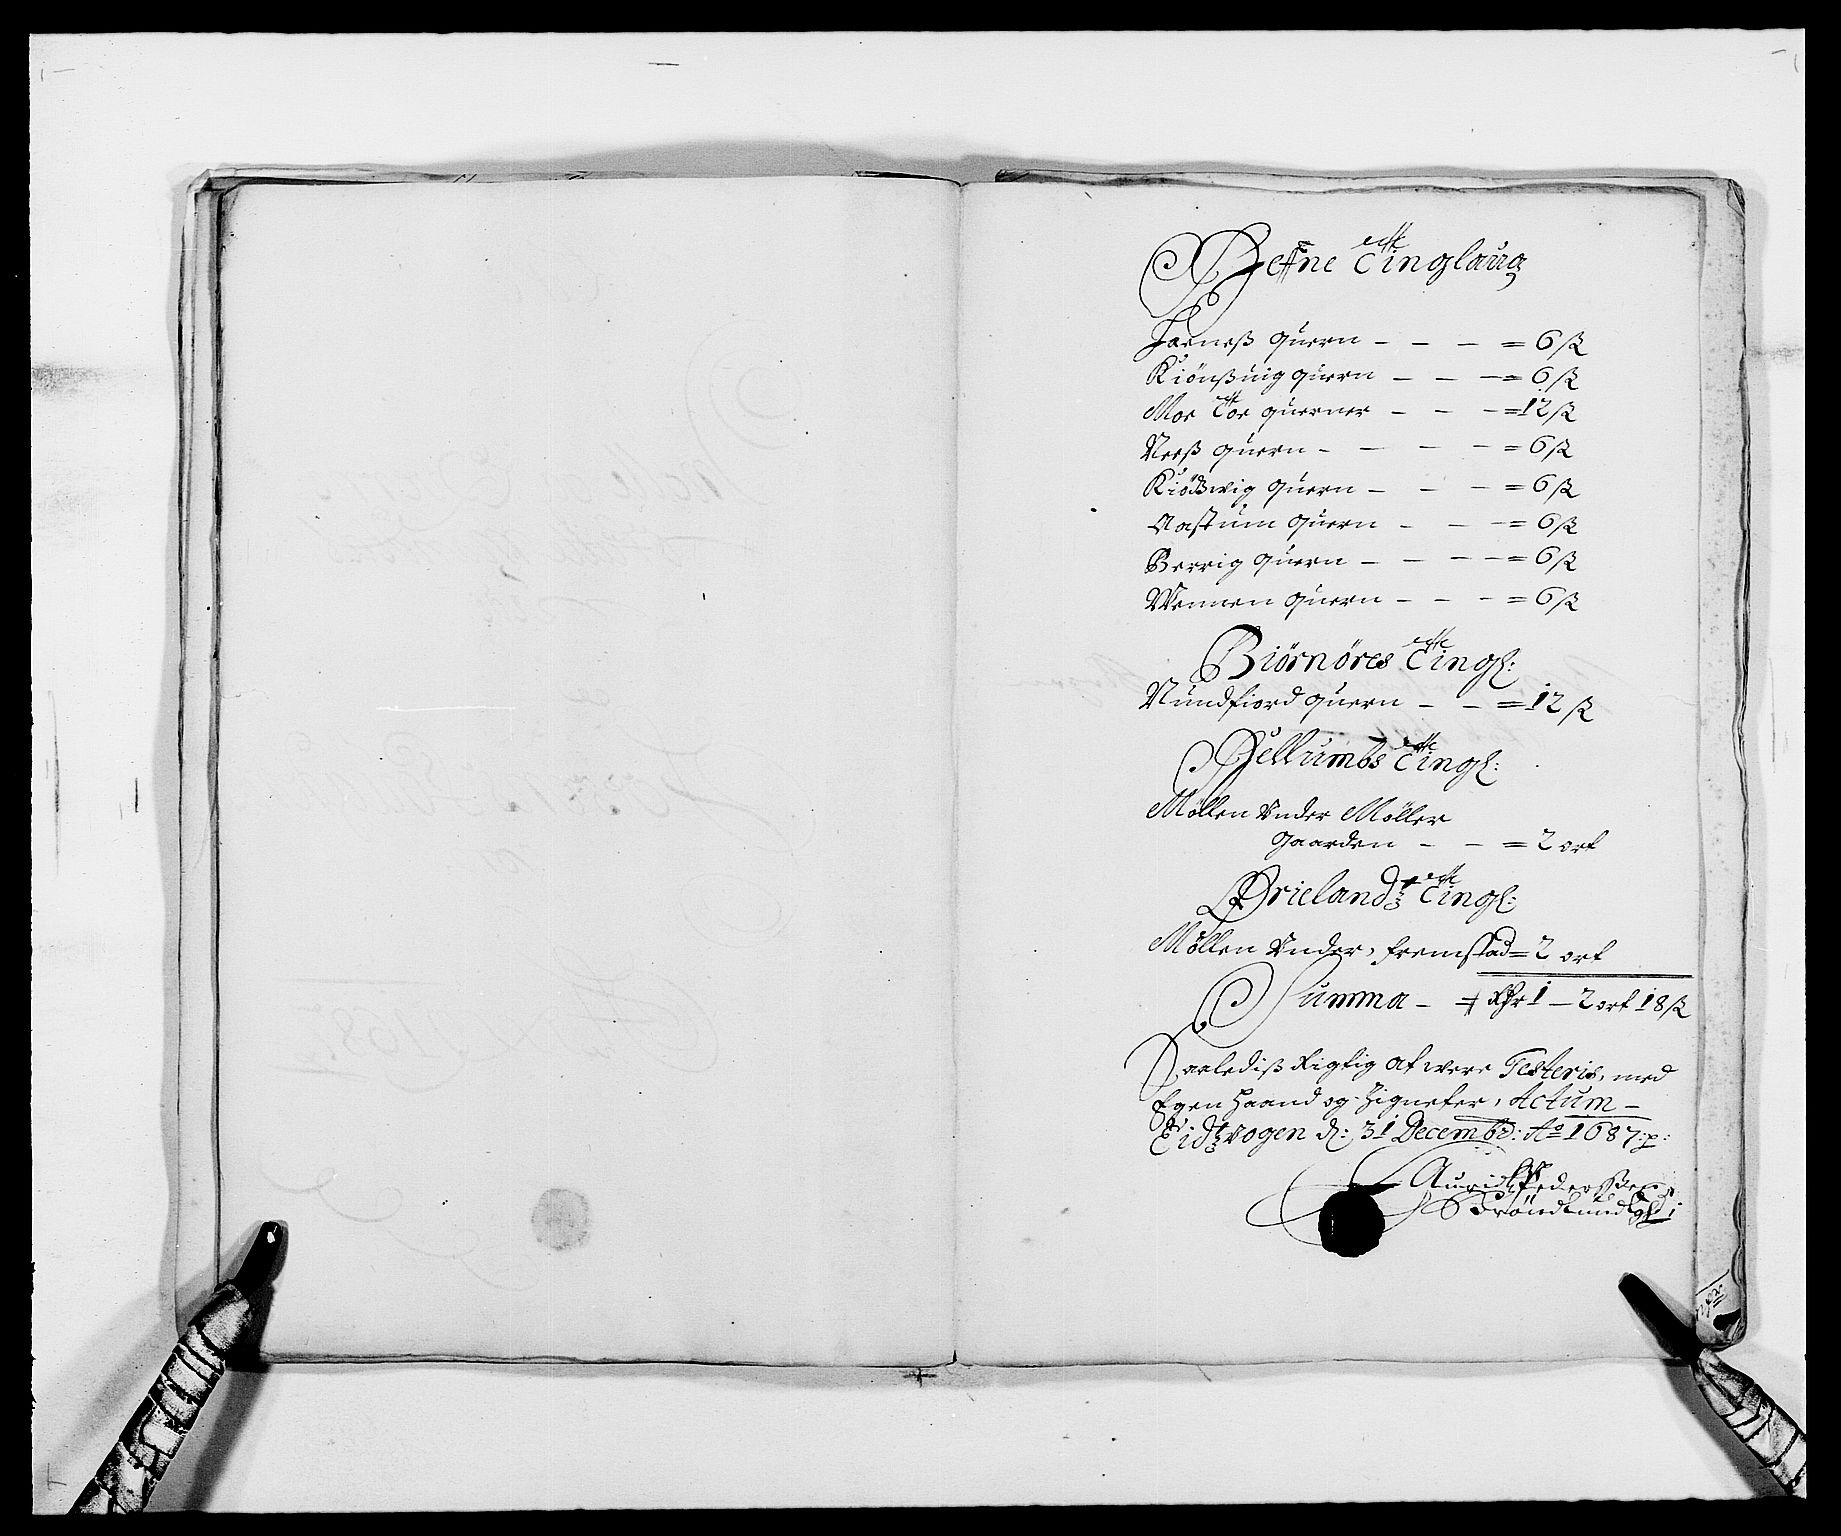 Hefne Tinglaug
Harneß quern - - - = 6 ß
Kiönßuig quern - - - = 6 ß
Moe Toe querner - - - = 12 ß
Neeß quern - - - - = 6 ß
Kiößwig quern - - - = 6 ß
Aastum quern - - - = 6 ß
Berrig quern - - - - = 6 ß
Wennen quern - - - = 6 ß
Biörnöres Tingl:
Nundfiord quern - - = 12 ß
Jellumbs Tingl:
Möllen Vnder Möller
gaarden - - = 2 ort
Ørielandz Tingl:
Möllen Vnder, fremstad = 2 ort
Summa - Rdr 1 - 2 ort 18 ß
Saaledis Rigtig at were Testeris, med
Egen Haand og Zigneter, Actum -
Eidzvogen d: 31 Decembr: Ao 1687:p:
Pederßen